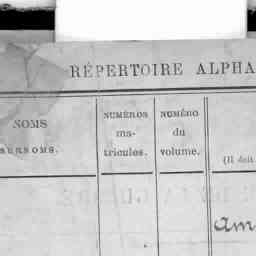 RÉPERTOIRE ALPHA
NOMS
SURNOMS.
NUMÉROS
ma-
tricules.
NUMÉRO
du
volume.
(Il doit